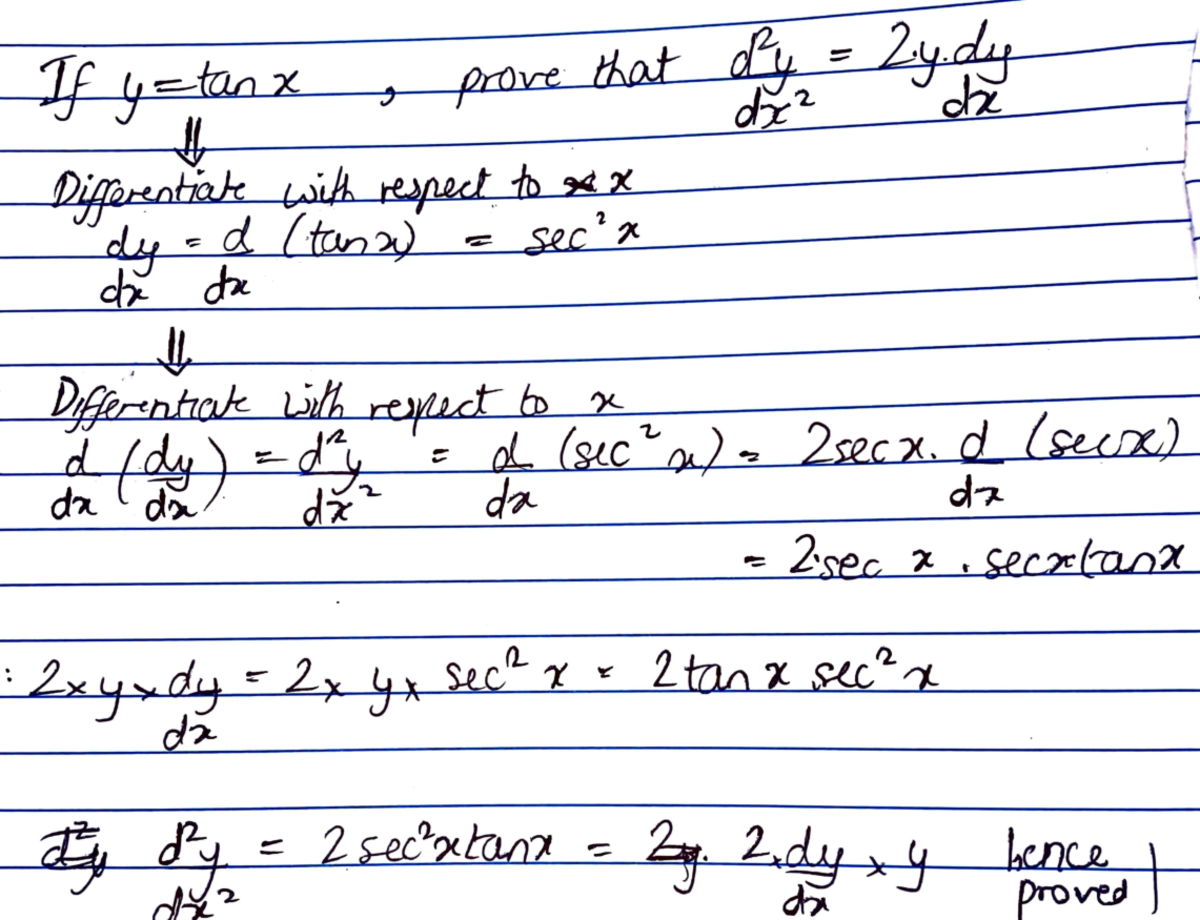 If y = tan x , prove that d²y/dx² = 2.y.dy/dx
⇓
Differentiate with respect to x
dy/dx = d/dx (tan x) = sec² x
⇓
Differentiate with respect to x
d/dx (dy/dx) = d²y/dx² = d/dx (sec² x) = 2 sec x . d/dx (sec x)
= 2.sec x . sec x tan x
: 2 × y × dy/dx = 2 × y × sec² x = 2 tan x sec² x
d²y/dx² = 2 sec² x tan x = 2 . dy/dx × y hence
proved